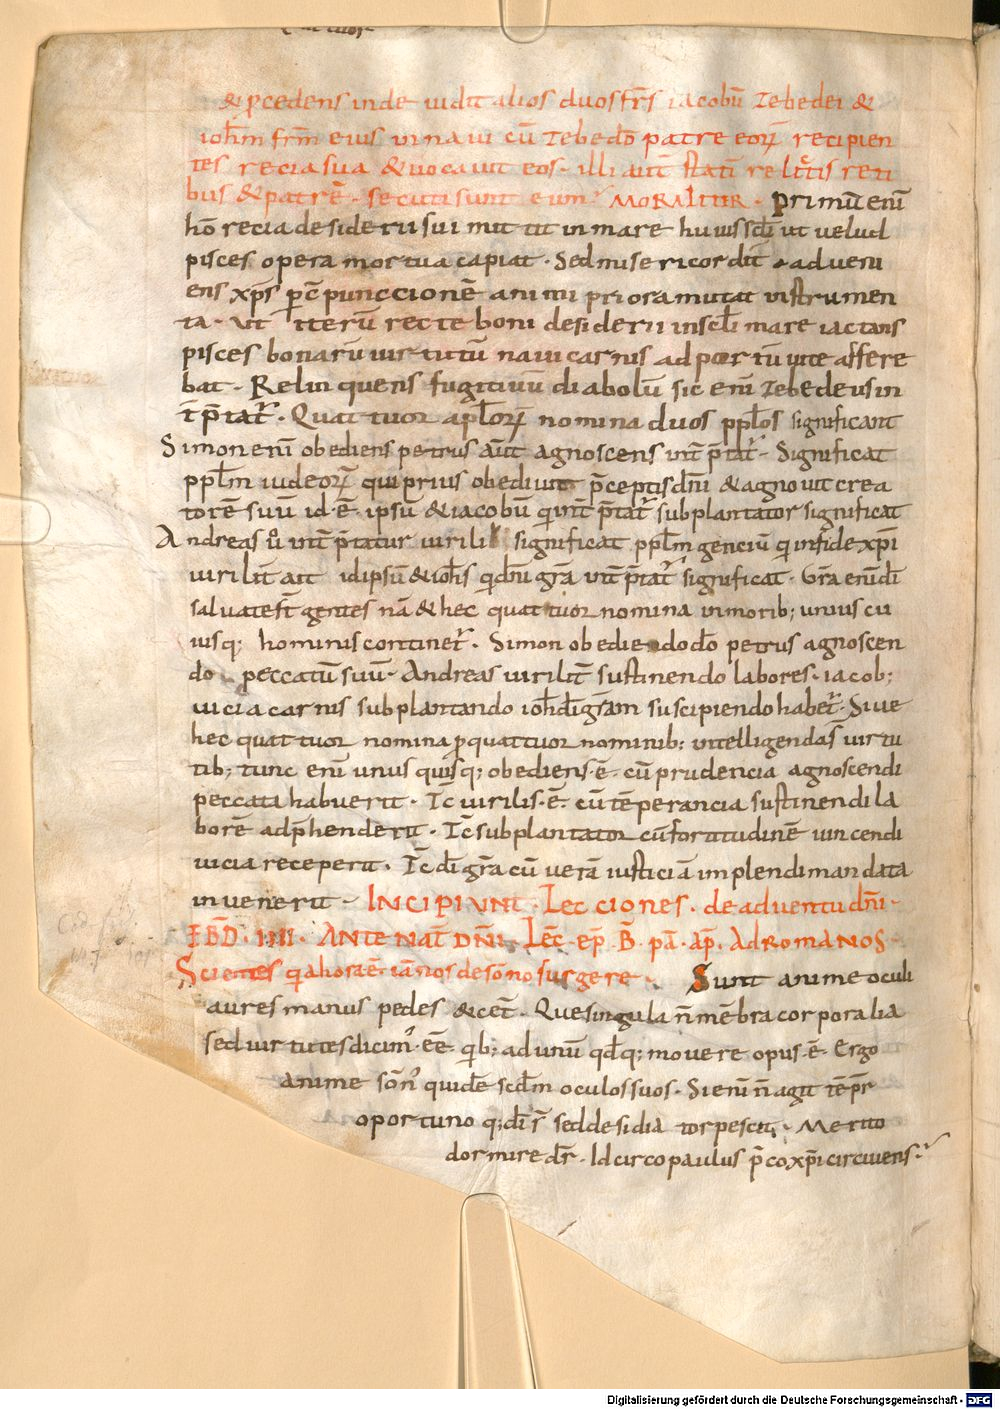 & p̄cedens inde uidit alios duos fr̄s iacobū Zebedei &
ioh̄m fr̄m eius in naui cū Zebedeo patre eorꝝ recipien
tes recia sua & uocauit eos · illi aut̄ stati relictis reti
bus & patrē · secuti sunt eum MORALITER · Primū eni̅
hō recia desiderii sui mittit in mare huius sc̄li ut uelud
pisces opera mortua capiat · Sed misericordit adueni
ens xp̄s p̄ cpunccionē animi priora mutat instrumen
ta · Vt iterū recte boni desiderii in sc̄li mare iactans
pisces bonarū uirtutū naui carnis ad portū uite affere
bat · Relinquens fugitiuū diabolū sic eni̅ Zebedeus in
t̄p̄tat̄ · Quattuor ap̄lorꝝ nomina duos pp̄los significant
Simon eni̅ obediens petrus aut̄ agnoscens int̄p̄tat̄ · Significat
pp̄lm iudeorꝝ qui prius obediuit p̄ceptis dn̄i & agnouit crea
torē suū id · ē · ipsū & iacobū qi int̄p̄tat̄ subplantator significat
Andreas u̅ int̄p̄tatur uirilis significat pp̄lm genciū qi in fide xp̄i
uirilit̄ ait idipsū & ioh̄s qi dn̄i gr̄a int̄p̄tat̄ significat · Gr̄a eni̅ dī
saluate st̄ gentes nā & hec quattuor nomina in morib; unius cu
iusq; hominis continet̄ · Simon obediendo dō petrus agnoscen
do peccatū suū · Andreas uirilit̄ sustinendo labores · iacob;
uicia carnis subplantando ioh̄ dī gr̄am suscipiendo habet̄ · Siue
hec quattuor nomina p̄ quattuor nominib; intelligendas uirtu
tib; tunc eni̅ unus quisq; obediens · ē · cū prudencia agnoscendi
peccata habuerit · Tc̄ uirilis · ē · cū tēperancia sustinendi la
borē adp̄henderit · Tc̄ subplantator cū fortitudinē uincendi
uicia receperit · Tc̄ dī gr̄a cū uera iusticiā implendi mandata
inuenerit · INCIPIVNT · Lecciones · de aduentu dn̄i ·
EBD · IIII · ANTE NAT̄ DN̄I · Lēc · ep̄ · B̄ · pā · ap̄ · Ad ROMANOS ·
Scientes qi a hora ē · iā nos de sōno surgere · Sunt anime oculi
aures manus pedes & cet̄ · Que singula n̄ mēbra corporalia
sed uirtutes dicim̄ · eē · qib; ad unū qdq; mouere opus · ē · Ergo
anime sōn̄ quidē scd̄m oculos suos · Si eni̅ n̄ agit tēpr̄
oportuno q; dr̄ sed desidia torpescit · Merito
dormire dr̄ · Idcirco paulus p̄co xp̄i circuiens ·